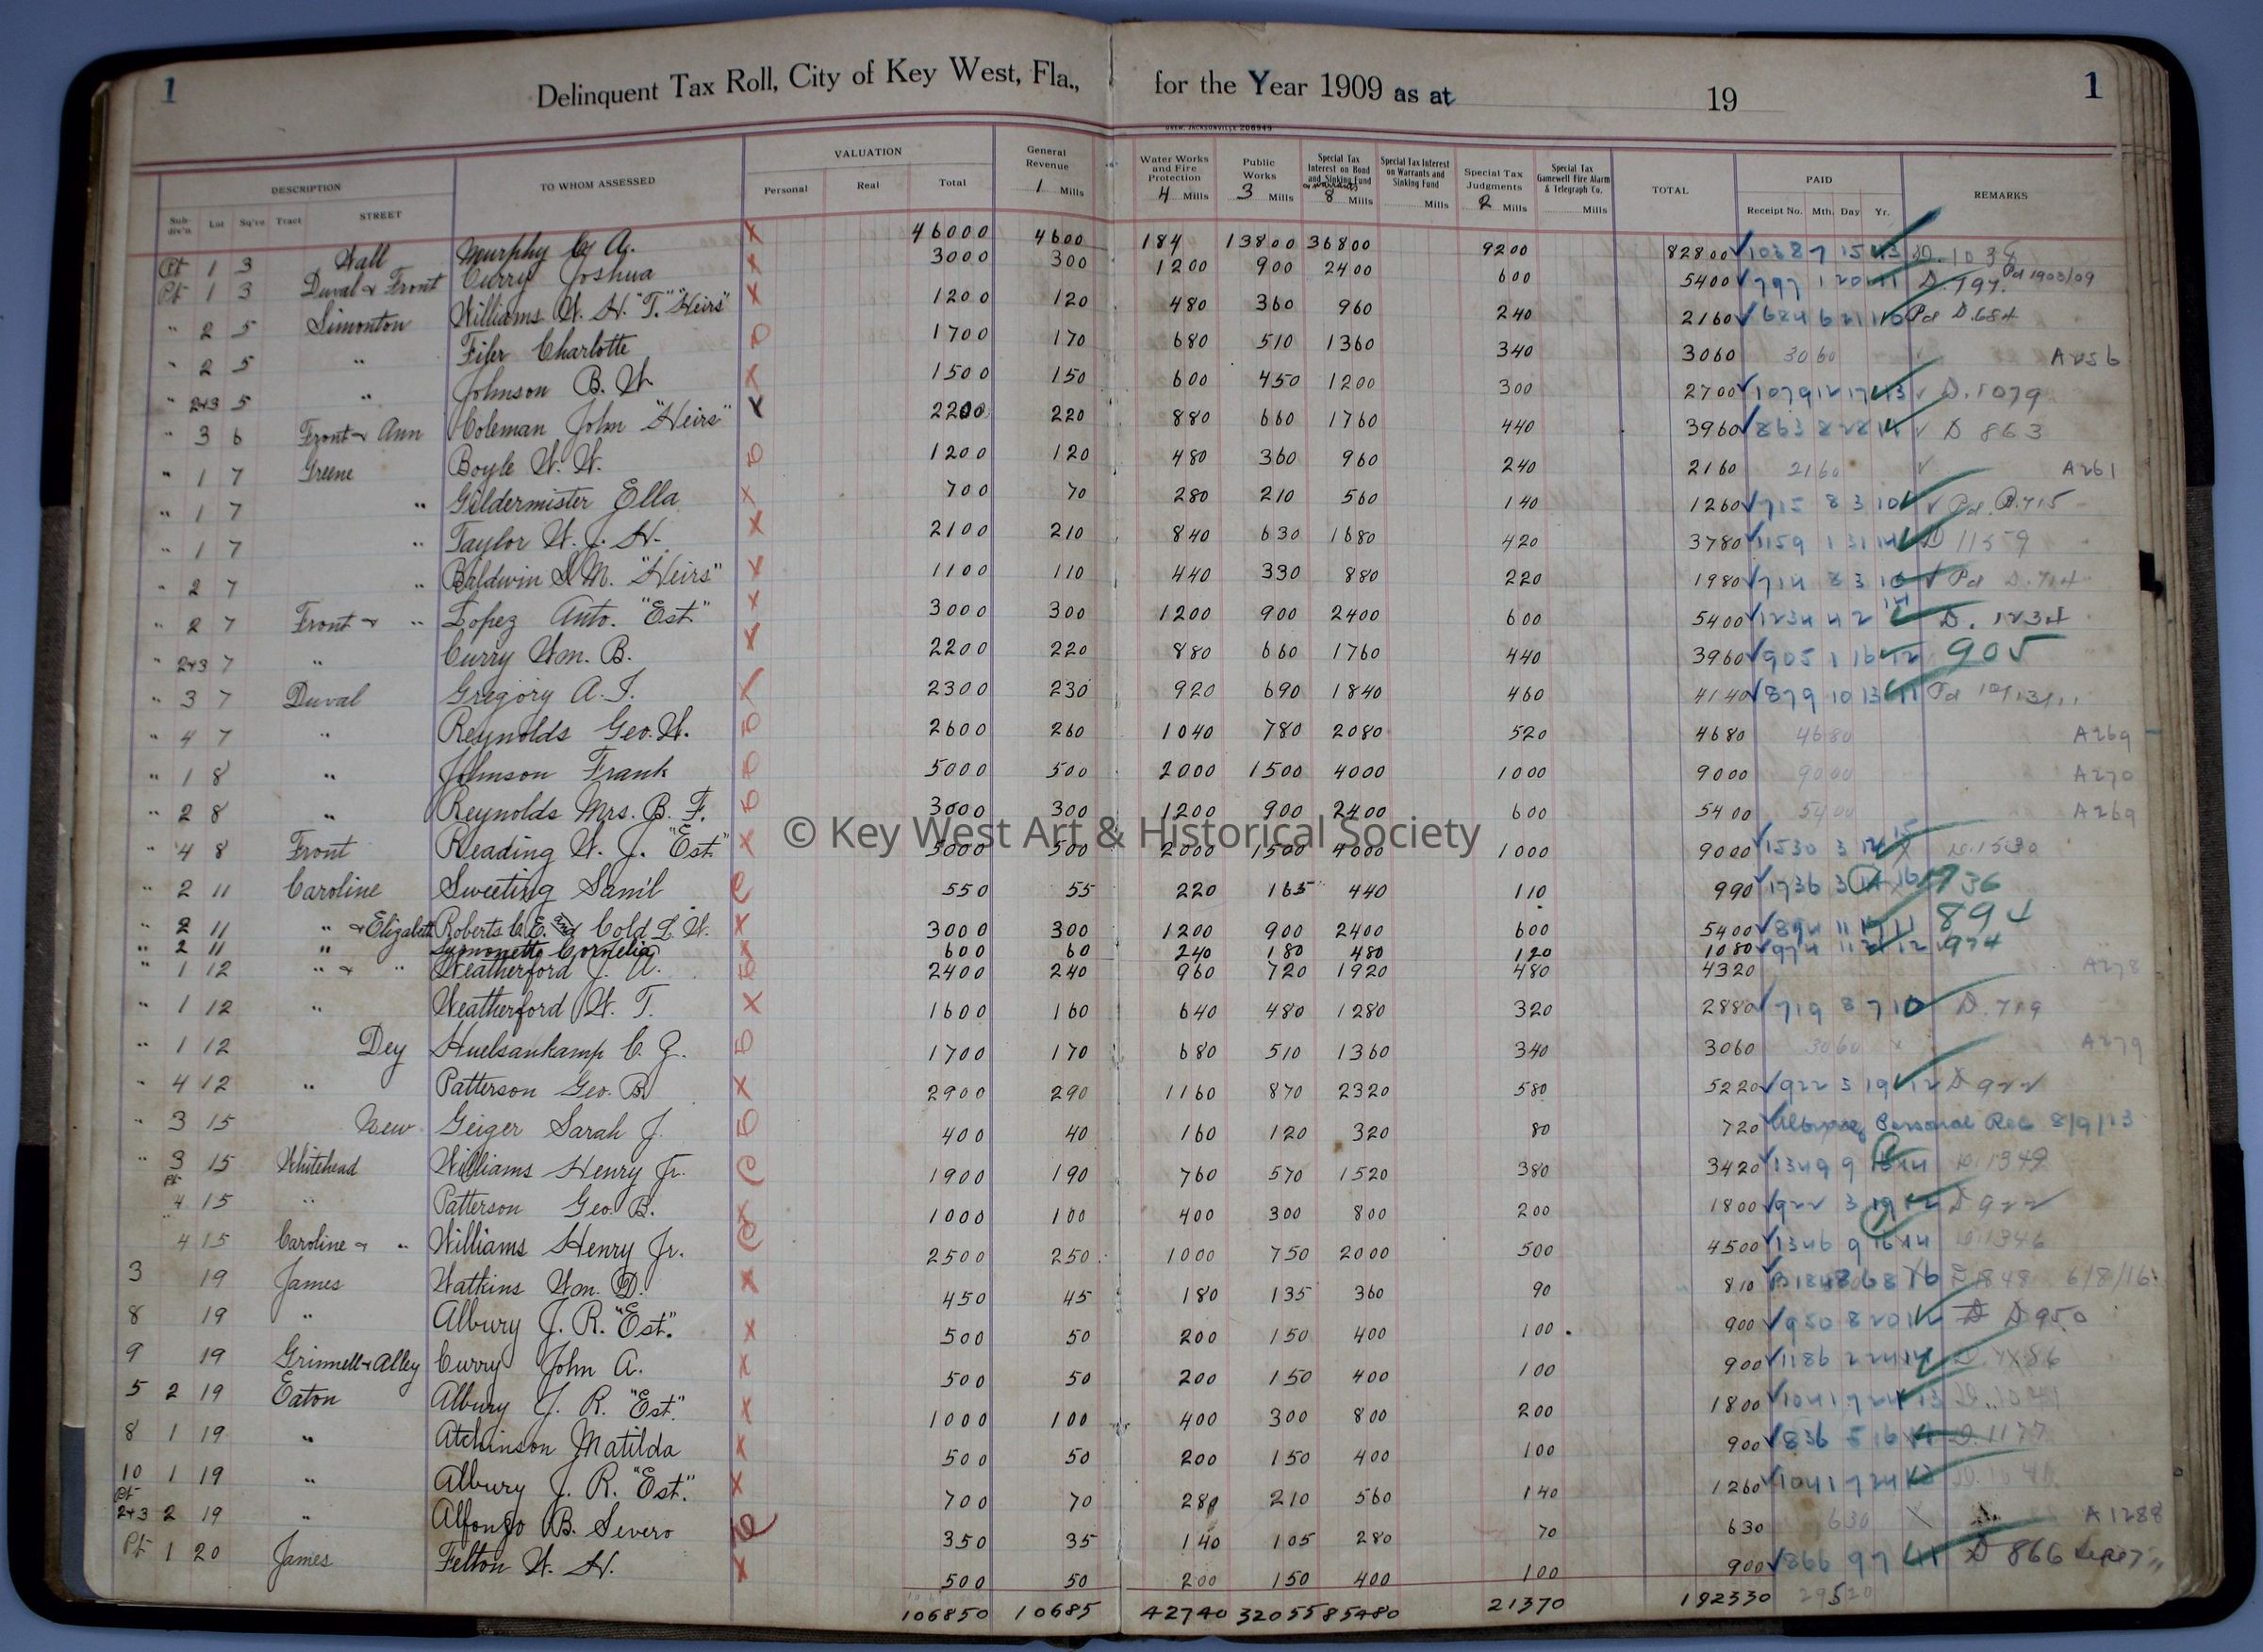 1 Delinquent Tax Roll, City of Key West, Fla., for the Year 1909 as at 19 1
DREW, JACKSONVILLE 206949
DESCRIPTION TO WHOM ASSESSED VALUATION General Revenue 1 Mills Water Works and Fire Protection 4 Mills Public Works 3 Mills Special Tax Interest on Bond and Sinking Fund 8 Mills Special Tax Interest on Warrants and Sinking Fund Mills Special Tax Judgments 2 Mills Special Tax Gamewell Fire Alarm & Telegraph Co. Mills TOTAL PAID REMARKS
Sub-div'n Lot Sq're Tract STREET Personal Real Total Receipt No. Mth. Day Yr.
Pt 1 3 Wall Murphy C. A. X 46000 4600 184 13800 36800 9200 82800 1038 7 15 13 D. 1038
Pt 1 3 Duval & Front Curry Joshua X 3000 300 1200 900 2400 600 5400 797 1 20 11 D. 797. Pd 1908/09
" 2 5 Simonton Williams W. H. "T." "Heirs" X 1200 120 480 360 960 240 2160 684 6 21 10 Pd D.684
" 2 5 " Filer Charlotte 1700 170 680 510 1360 340 3060 3060 A256
" 2+3 5 " Johnson B. W. X 1500 150 600 450 1200 300 2700 1079 12 17 13 D. 1079
" 3 6 Front & Ann Coleman John "Heirs" X 2200 220 880 660 1760 440 3960 863 8 28 11 D 863
" 1 7 Greene Boyle W. W. 1200 120 480 360 960 240 2160 2160 A261
" 1 7 " Gildermister Ella X 700 70 280 210 560 140 1260 715 8 3 10 Pd. D.715
" 1 7 " Taylor W. J. H. X 2100 210 840 630 1680 420 3780 1159 1 31 14 D 1159
" 2 7 " Baldwin S. M. "Heirs" X 1100 110 440 330 880 220 1980 714 8 3 10 Pd D.714
" 2 7 Front & " Lopez Anto. "Est" X 3000 300 1200 900 2400 600 5400 1234 4 2 14 D. 1234
" 2+3 7 " Curry Wm. B. X 2200 220 880 660 1760 440 3960 905 1 16 12 905
" 3 7 Duval Gregory A. T. X 2300 230 920 690 1840 460 4140 879 10 13 11 Pd 10/13/11
" 4 7 " Reynolds Geo. W. 2600 260 1040 780 2080 520 4680 4680 A269
" 1 8 " Johnson Frank 5000 500 2000 1500 4000 1000 9000 9000 A270
" 2 8 " Reynolds Mrs. B. F. 3000 300 1200 900 2400 600 5400 5400 A269
" 4 8 Front Reading W. J. "Est" X 5000 500 2000 1500 4000 1000 9000 1530 3 12 15 D.1530
" 2 11 Caroline Sweeting Sam'l C 550 55 220 165 440 110 990 1736 3 14 16 1736
" 2 11 " & Elizabeth Roberts C. E. and Cold L. W. X 3000 300 1200 900 2400 600 5400 894 11 11 894
" 2 11 " Symonette Cornelia X 600 60 240 180 480 120 1080 974 11 2 12 974
" 1 12 " & " Weatherford J. A. 2400 240 960 720 1920 480 4320 A278
" 1 12 " Weatherford W. T. X 1600 160 640 480 1280 320 2880 719 8 7 10 D. 719
" 1 12 Dey Huelsankamp C. J. 1700 170 680 510 1360 340 3060 3060 A279
" 4 12 " Patterson Geo. B. X 2900 290 1160 870 2320 580 5220 922 3 19 12 D 922
" 3 15 New Geiger Sarah J. 400 40 160 120 320 80 720 Personal Rec 8/9/13
" 3 15 Whitehead Williams Henry Jr. C 1900 190 760 570 1520 380 3420 1349 9 18 14 D.1349
Pt 4 15 " Patterson Geo. B. X 1000 100 400 300 800 200 1800 922 3 19 12 D 922
" 4 15 Caroline & " Williams Henry Jr. C 2500 250 1000 750 2000 500 4500 1346 9 16 14 D.1346
3 19 James Watkins Wm. D. X 450 45 180 135 360 90 810 B1848 6 8 16 D 1848 6/8/16
8 19 " Albury J. R. "Est". X 500 50 200 150 400 100 900 950 8 20 12 D D 950
9 19 Grinnell & Alley Curry John A. X 500 50 200 150 400 100 900 1186 2 24 14 D. 1186
5 2 19 Eaton Albury J. R. "Est". X 1000 100 400 300 800 200 1800 1041 7 24 13 D. 1041
8 1 19 " Atchinson Matilda X 500 50 200 150 400 100 900 836 5 16 11 D. 1177
10 1 19 " Albury J. R. "Est". X 700 70 280 210 560 140 1260 1041 7 24 13
Pt 2+3 2 19 " Alfonso B. Severo 350 35 140 105 280 70 630 630 X A1288
Pt 1 20 James Felton W. H. X 500 50 200 150 400 100 900 866 9 7 11 D 866 Sept 7
106850 10685 42740 32055 85480 21370 192330 29520
© Key West Art & Historical Society